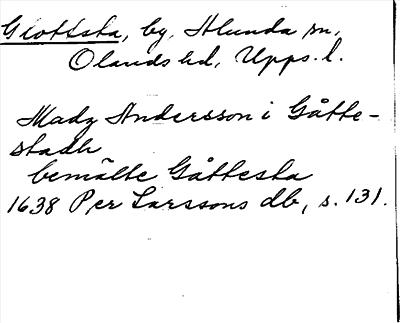 Glottsta, by, Alunda sn,
Olands hd, Upps. l.
Madz Andersson i Gåtte-
stadh
bemälte Gåttesta
1638 Per Larssons db, s. 131.